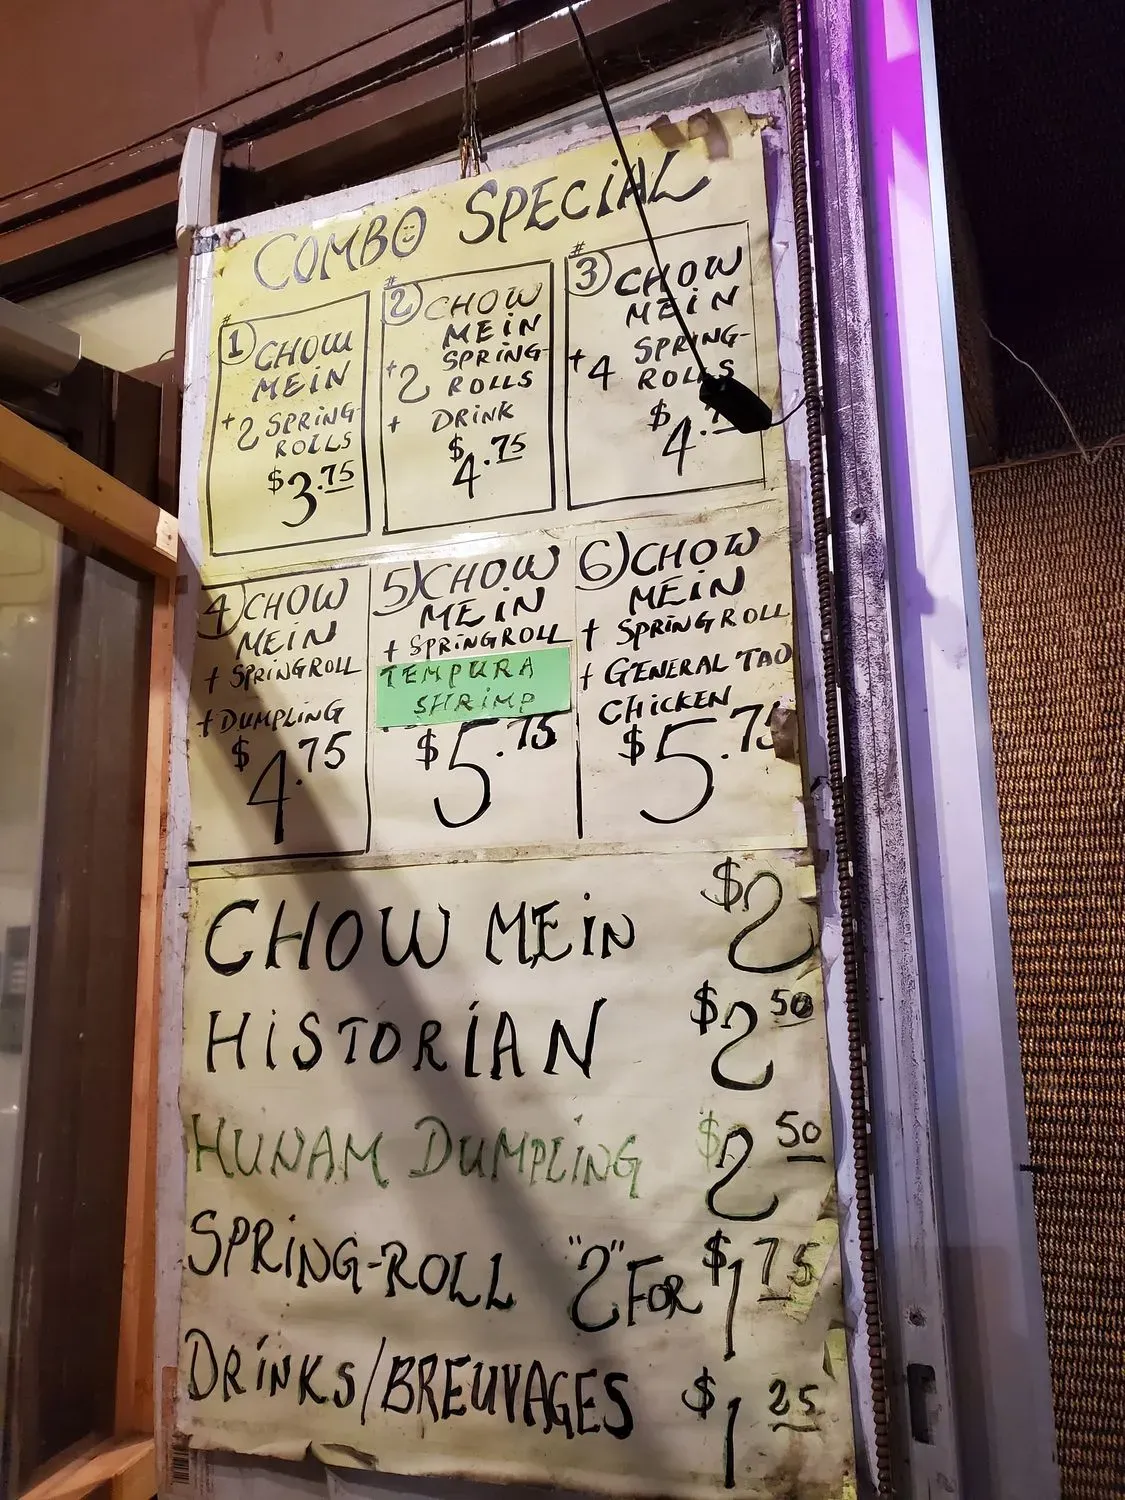 COMBO SPECIAL
#1 CHOW
MEIN
+2 SPRING
ROLLS
$3.75
#2 CHOW
MEIN
+2 SPRING-
ROLLS
+ DRINK
$4.75
#3 CHOW
MEIN
+4 SPRING-
ROLLS
$4.
4 CHOW
MEIN
+ SPRINGROLL
+ DUMPLING
$4.75
5 CHOW
MEIN
+ SPRINGROLL
TEMPURA
SHRIMP
$5.75
6 CHOW
MEIN
+ SPRINGROLL
+ GENERAL TAO
CHICKEN
$5.75
CHOW MEIN $2
HISTORIAN $2 50
HUNAM DUMPLING $2 50
SPRING-ROLL "2" FOR $1 75
DRINKS/BREUVAGES $1 25